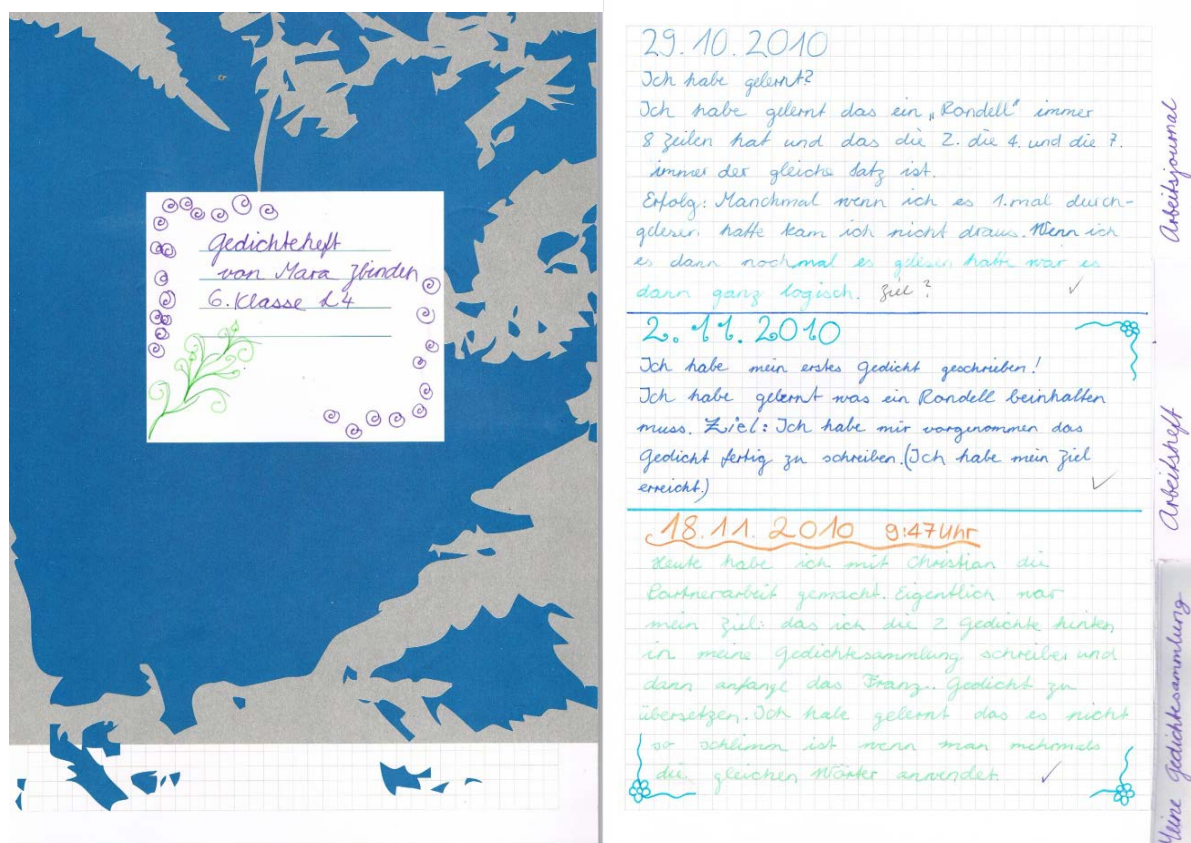 Gedichteheft
von Mara Zbinden
6. Klasse L4
29.10.2010
Ich habe gelernt?
Ich habe gelernt das ein „Rondell“ immer
8 Zeilen hat und das die 2. die 4. und die 7.
immer der gleiche Satz ist.
Erfolg: Manchmal wenn ich es 1.mal durch-
gelesen hatte kam ich nicht draus. Wenn ich
es dann nochmal es gelesen hatte war es
dann ganz logisch. Ziel?
2.11.2010
Ich habe mein erstes Gedicht geschrieben!
Ich habe gelernt was ein Rondell beinhalten
muss. Ziel: Ich habe mir vorgenommen das
Gedicht fertig zu schreiben. (Ich habe mein Ziel
erreicht.)
18.11.2010 9:47Uhr
Heute habe ich mit Christian die
Partnerarbeit gemacht. Eigentlich war
mein Ziel: das ich die 2 Gedichte hinten
in meine Gedichtesammlung schreibe und
dann anfange das Franz.. Gedicht zu
übersetzen. Ich habe gelernt das es nicht
so schlimm ist wenn man mehrmals
die gleichen Wörter anwendet.
Arbeitsjournal
Arbeitsheft
Meine Gedichtesammlung